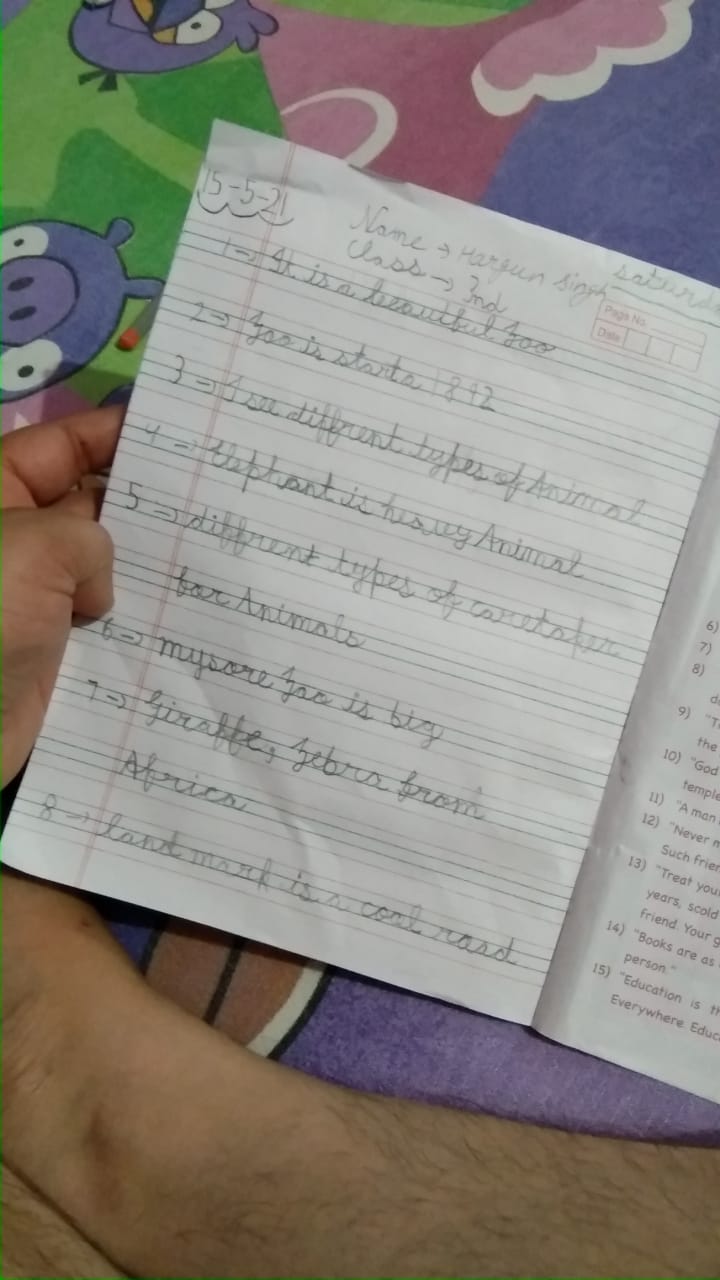 15-5-21
Name → Hargun Singh
Saturd
Class → 2nd
Page No.
Date
1 → It is a beautiful Zoo
2 → Zoo is starta 1892
3 → I see diffrent types of Animal
4 → Elephant is heavy Animal
5 → diffrent types of caretaker
for Animals
6 → mysore Zoo is big
7 → Giraffe, Zebra from
Africa
8 → land mark is a coal road
6)
7)
8)
d
9) "T
the
10) "God
temple
11) "A man
12) "Never m
Such frien
13) "Treat you
years, scold
friend. Your g
14) "Books are as
person."
15) "Education is th
Everywhere Educ